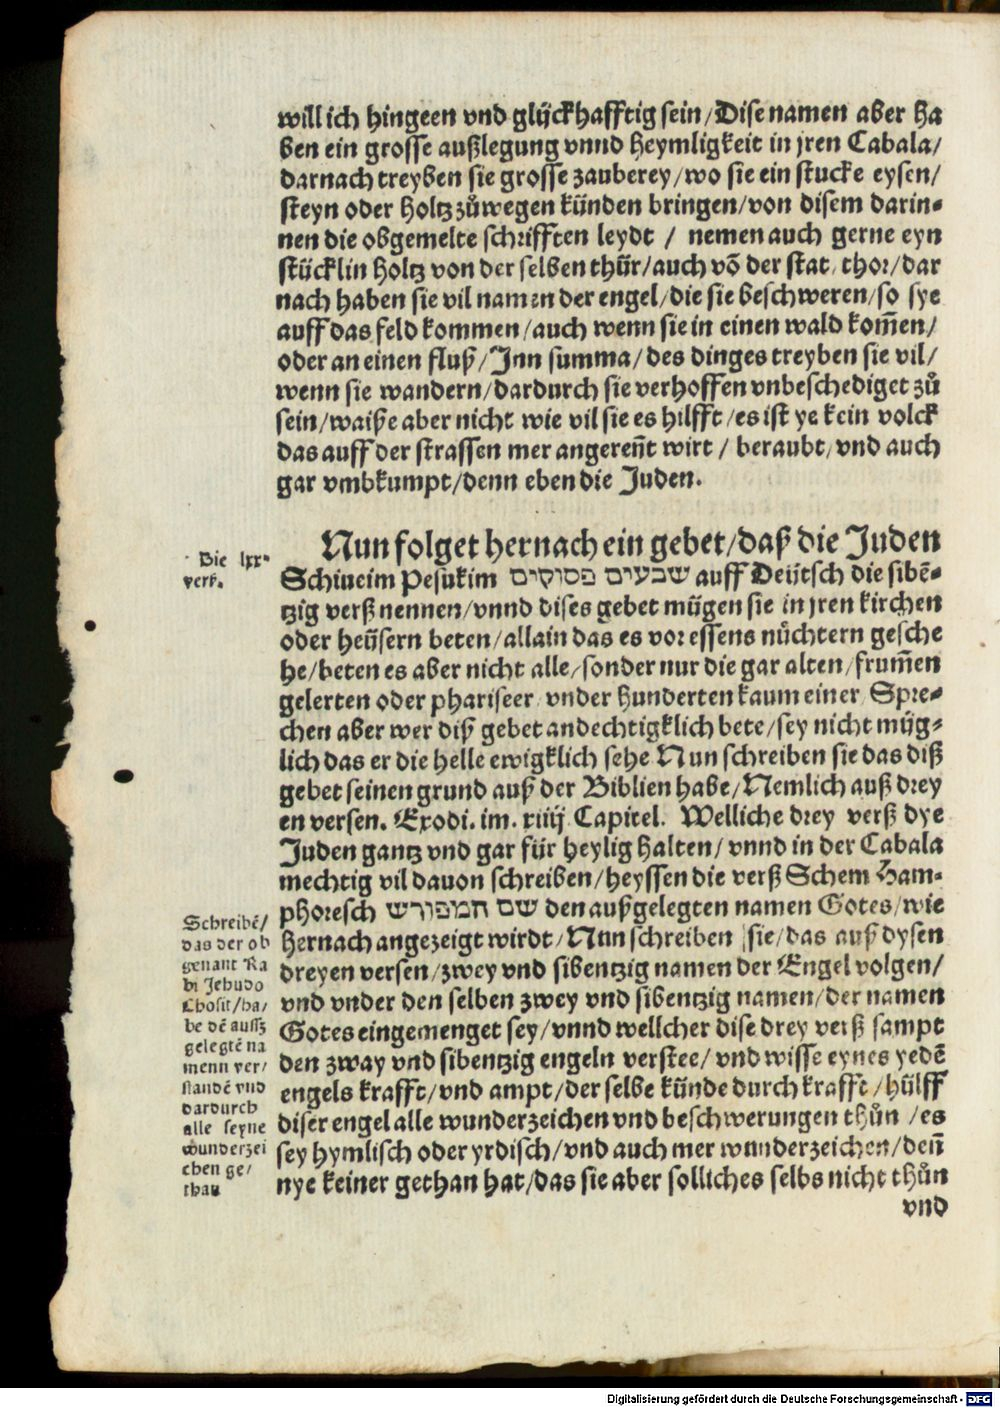 will ich hingeen vnd glückhafftig sein/Dise namen aber ha
ben ein grosse außlegung vnnd heymligkeit in jren Cabala/
darnach treyben sie grosse zauberey/wo sie ein stucke eysen/
steyn oder holtz zůwegen künden bringen/von disem darin-
nen die obgemelte schrifften leydt / nemen auch gerne eyn
stücklin holtz von der selben thür/auch võ der stat thor/dar
nach haben sie vil namen der engel/die sie beschweren/so sye
auff das feld kommen/auch wenn sie in einen wald kom̃en/
oder an einen fluß/Inn summa/des dinges treyben sie vil/
wenn sie wandern/dardurch sie verhoffen vnbeschediget zů
sein/waiße aber nicht wie vil sie es hilfft/es ist ye kein volck
das auff der strassen mer angereñt wirt / beraubt/vnd auch
gar vmbkumpt/denn eben die Juden.
Die lxx.
verß.
Nun folget hernach ein gebet/daß die Juden
Schiueim Pesukim שבעים פסוקים auff Deütsch die sibẽ-
tzig verß nennen/vnnd dises gebet mügen sie in jren kirchen
oder heüsern beten/allain das es vor essens nüchtern gesche
he/beten es aber nicht alle/sonder nur die gar alten/frum̃en
gelerten oder phariseer vnder hunderten kaum einer Spre-
chen aber wer diß gebet andechtigklich bete/sey nicht müg-
lich das er die helle ewigklich sehe Nun schreiben sie das diß
gebet seinen grund auß der Biblien habe/Nemlich auß drey
en versen. Exodi. im. xiiij Capitel. Welliche drey verß dye
Juden gantz vnd gar für heylig halten/vnnd in der Cabala
mechtig vil dauon schreiben/heyssen die verß Schem Ham-
phoresch שם המפורש den außgelegten namen Gotes/wie
hernach angezeigt wirdt/Nun schreiben sie/das auß dysen
dreyen versen/zwey vnd sibentzig namen der Engel volgen/
vnd vnder den selben zwey vnd sibentzig namen/der namen
Gotes eingemenget sey/vnnd wellcher dise drey verß sampt
den zway vnd sibentzig engeln verstee/vnd wisse eynes yedẽ
engels krafft/vnd ampt/der selbe künde durch krafft/hülff
diser engel alle wunderzeichen vnd beschwerungen thůn /es
sey hymlisch oder yrdisch/vnd auch mer wunderzeichen/deñ
nye keiner gethan hat/das sie aber solliches selbs nicht thůn
vnd
Schreibẽ/
das der ob
genant Ra
bi Jehudo
Chosit/ha/
be dẽ aussz
gelegtẽ na
menn ver/
standẽ vnd
dardurch
alle seyne
wunderzei
chen ge/
than
Digitalisierung gefördert durch die Deutsche Forschungsgemeinschaft - DFG